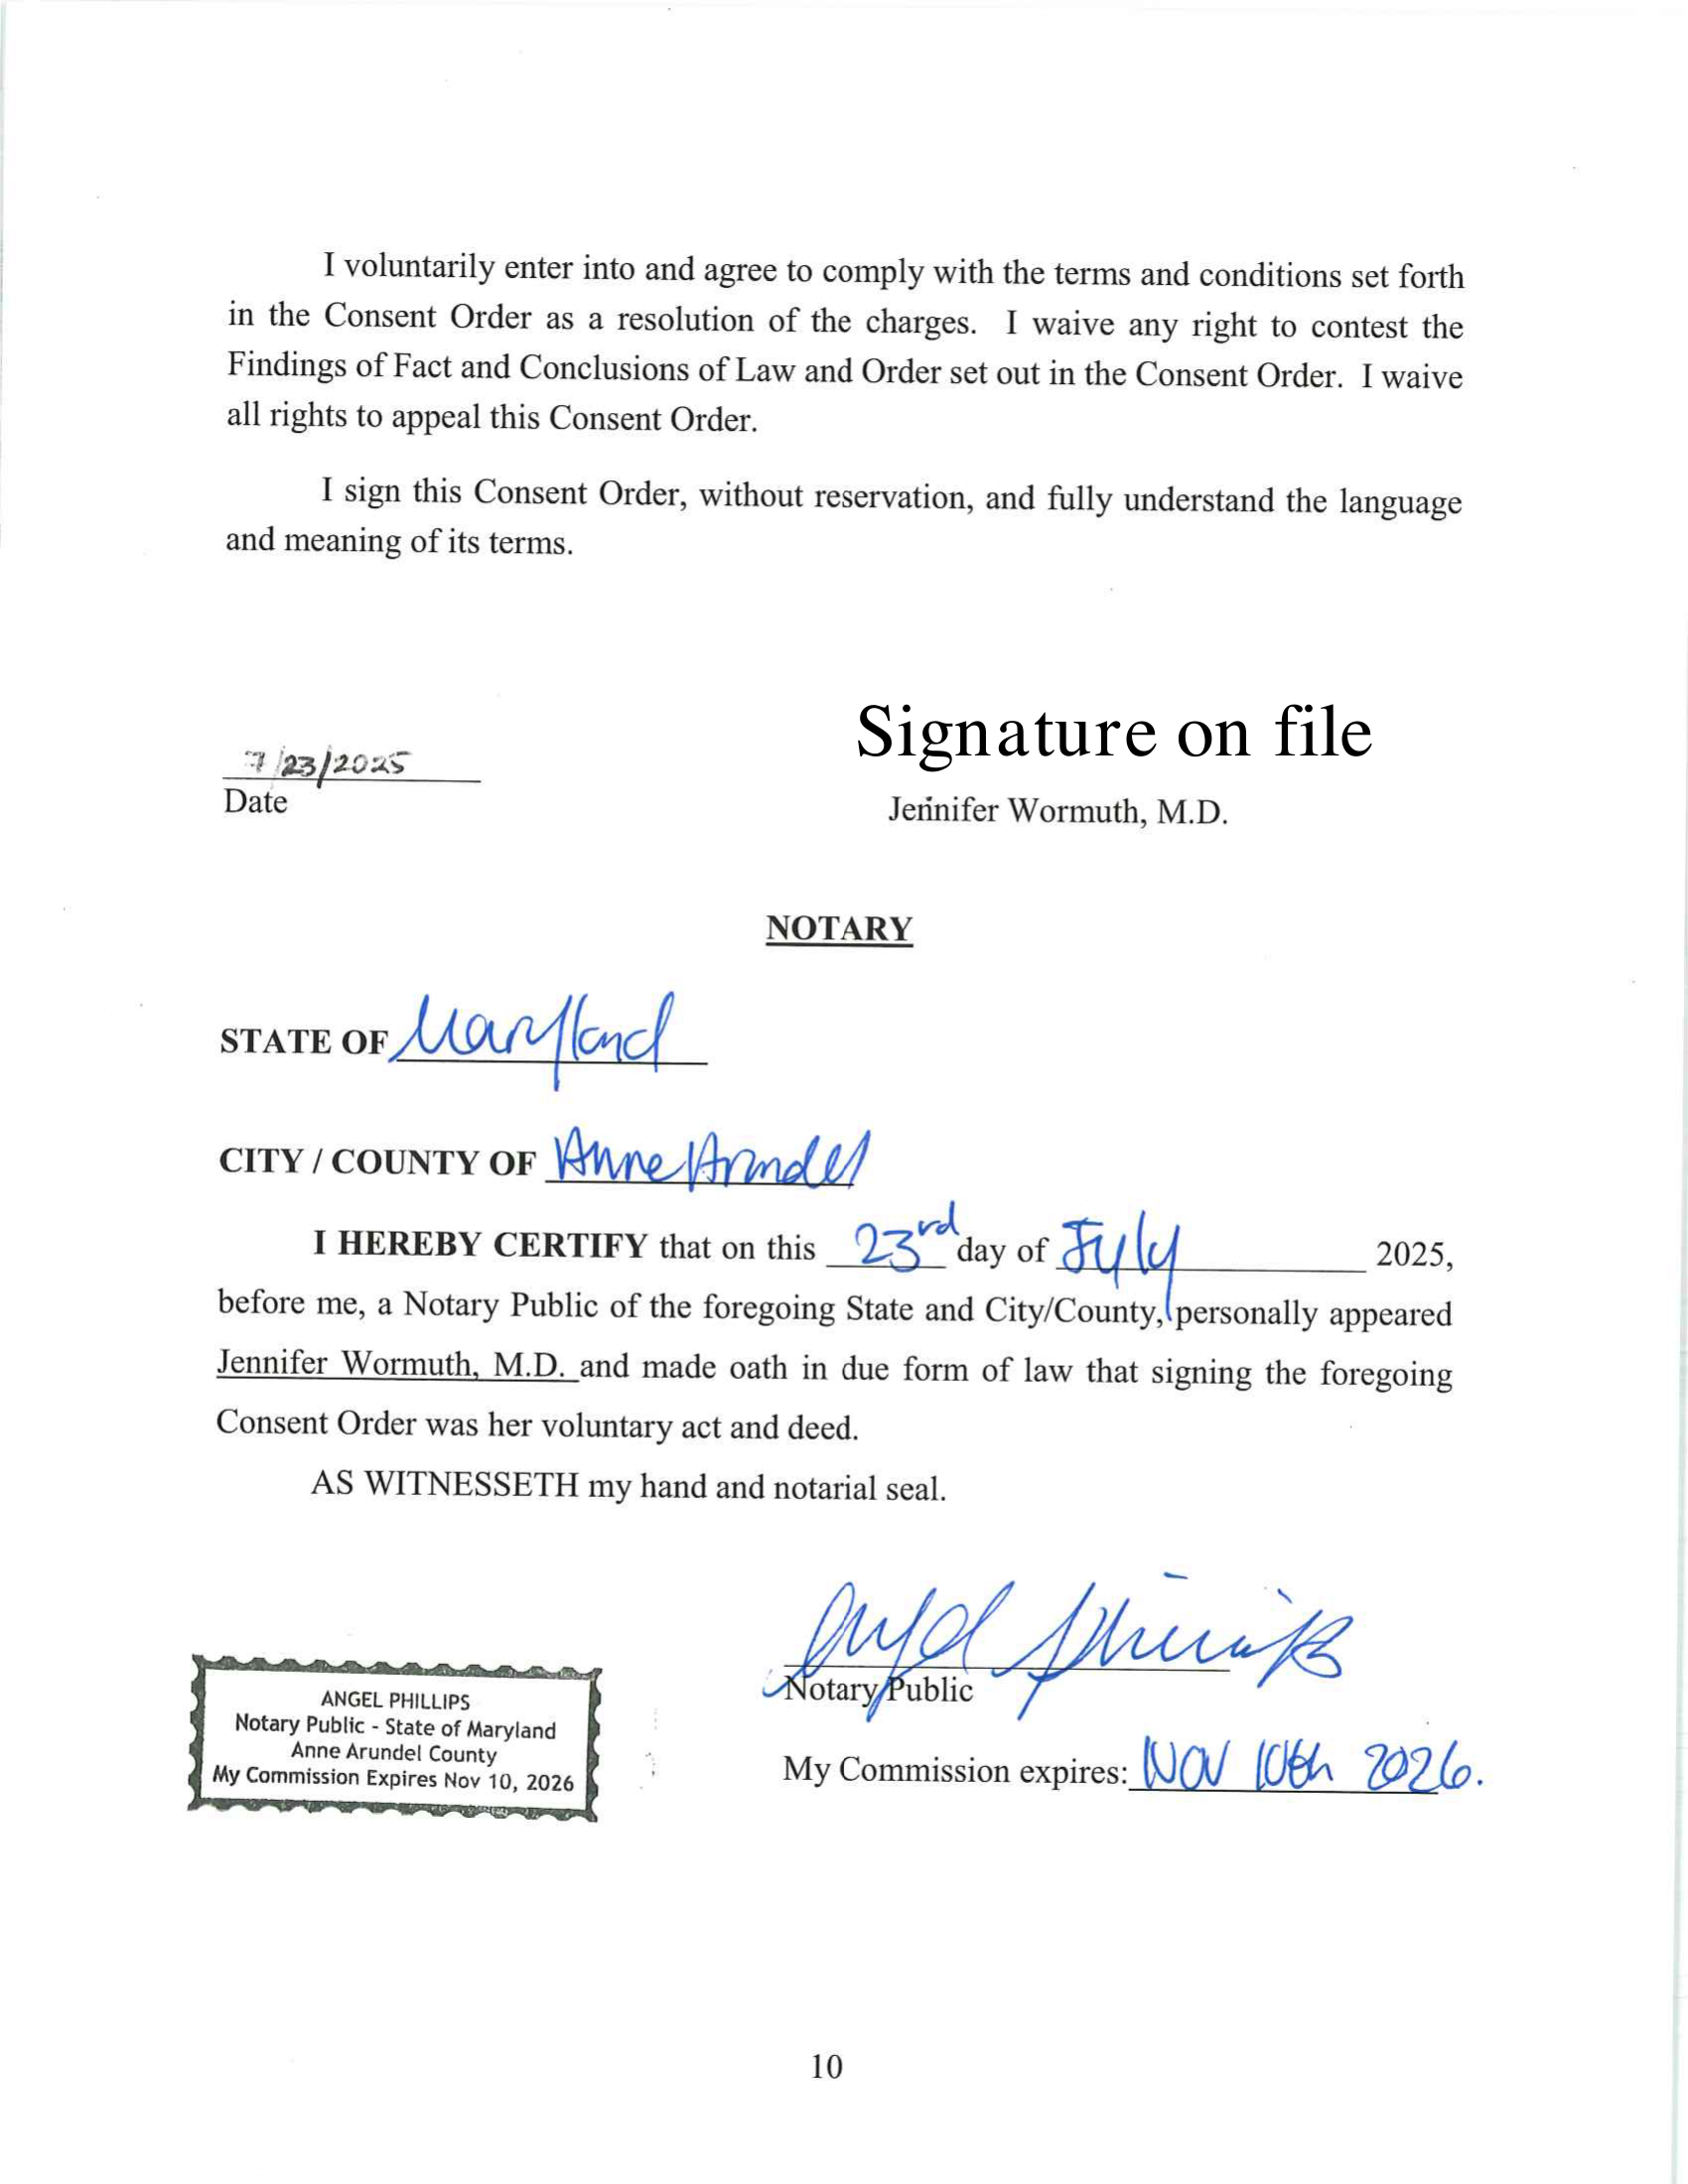 I voluntarily enter into and agree to comply with the terms and conditions set forth
in the Consent Order as a resolution of the charges. I waive any right to contest the
Findings of Fact and Conclusions of Law and Order set out in the Consent Order. I waive
all rights to appeal this Consent Order.
I sign this Consent Order, without reservation, and fully understand the language
and meaning of its terms.
Signature on file
7/23/2025
Date
Jennifer Wormuth, M.D.
NOTARY
STATE OF Maryland
CITY / COUNTY OF Anne Arundel
I HEREBY CERTIFY that on this 23rd day of July 2025,
before me, a Notary Public of the foregoing State and City/County, personally appeared
Jennifer Wormuth, M.D. and made oath in due form of law that signing the foregoing
Consent Order was her voluntary act and deed.
AS WITNESSETH my hand and notarial seal.
Notary Public
ANGEL PHILLIPS
Notary Public - State of Maryland
Anne Arundel County
My Commission Expires Nov 10, 2026
My Commission expires: Nov 10th 2026.
10